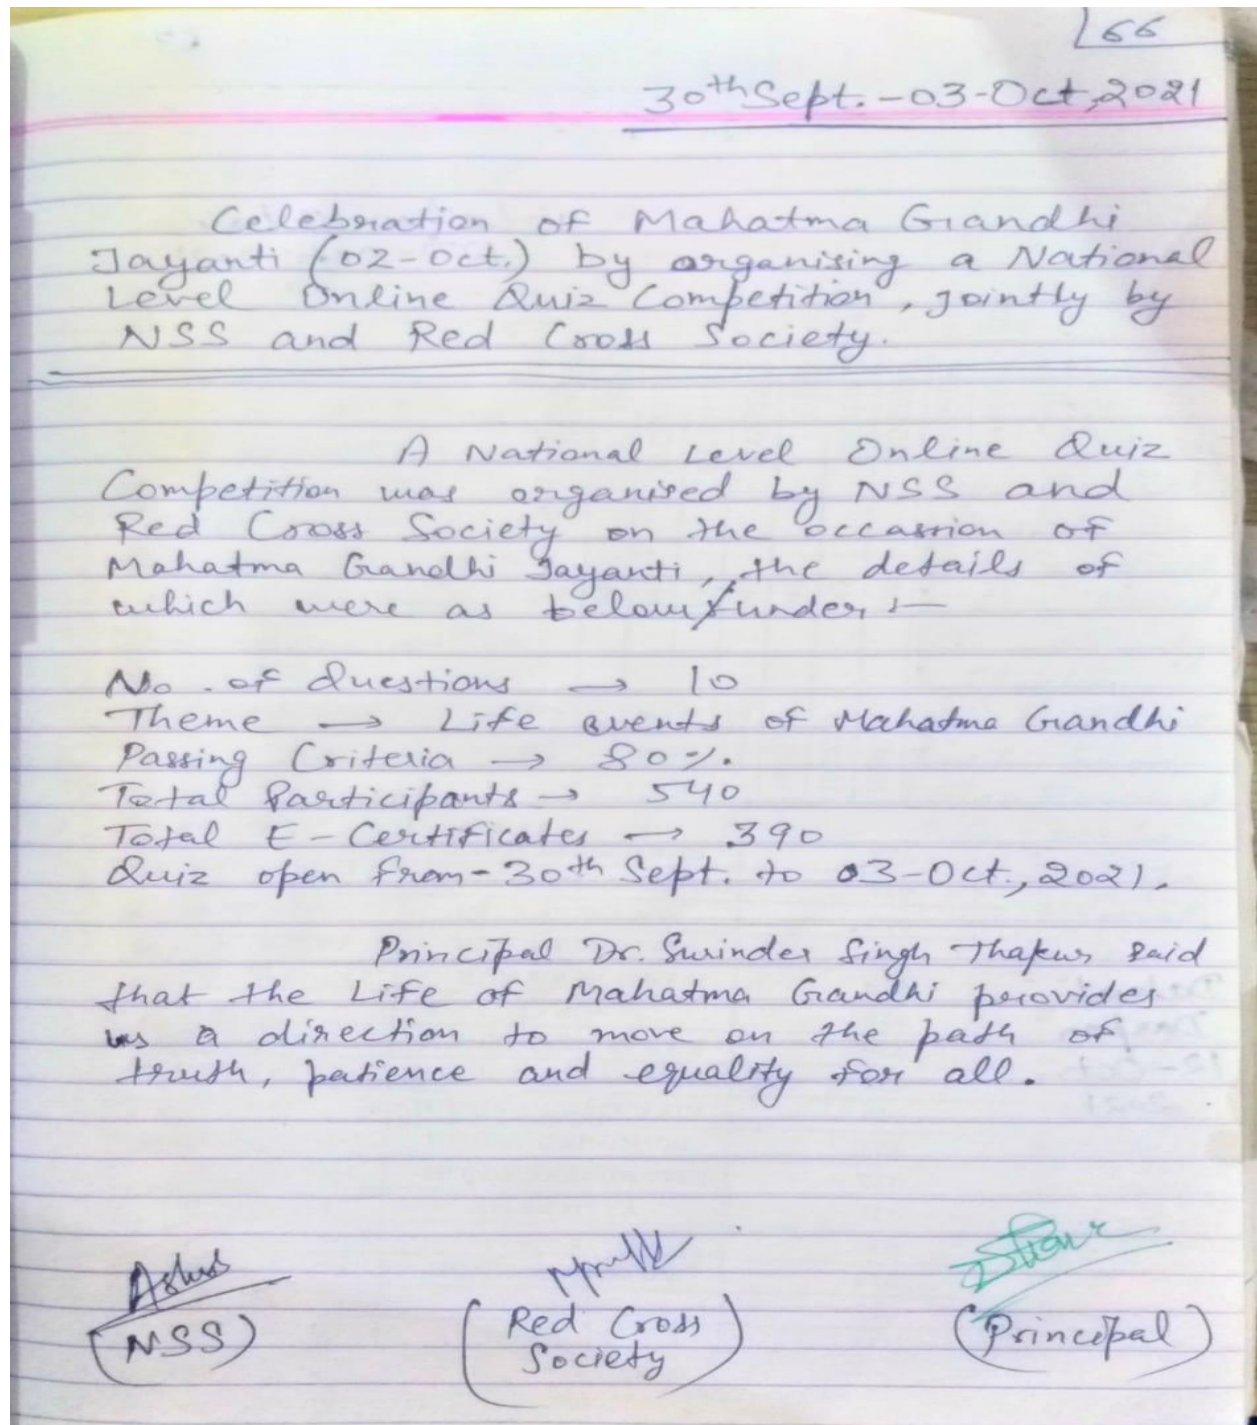 66
30th Sept. - 03-Oct, 2021
Celebration of Mahatma Gandhi
Jayanti (02-Oct.) by organising a National
Level Online Quiz Competition, jointly by
NSS and Red Cross Society.
A National Level Online Quiz
Competition was organised by NSS and
Red Cross Society on the occassion of
Mahatma Gandhi Jayanti, the details of
which were as below/under :—
No. of Questions → 10
Theme → Life events of Mahatma Gandhi
Passing Criteria → 80%.
Total Participants → 540
Total E-Certificates → 390
Quiz open from - 30th Sept. to 03-Oct., 2021.
Principal Dr. Surinder Singh Thakur said
that the Life of Mahatma Gandhi provides
us a direction to move on the path of
truth, patience and equality for all.
(NSS) (Red Cross (Principal)
Society)